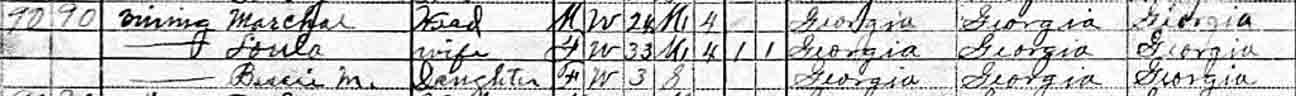 90 90 Vining Marchal Head M W 24 M1 4 Georgia Georgia Georgia
— Loula wife F W 33 M1 4 1 1 Georgia Georgia Georgia
— Bessie M. Daughter F W 3 S Georgia Georgia Georgia